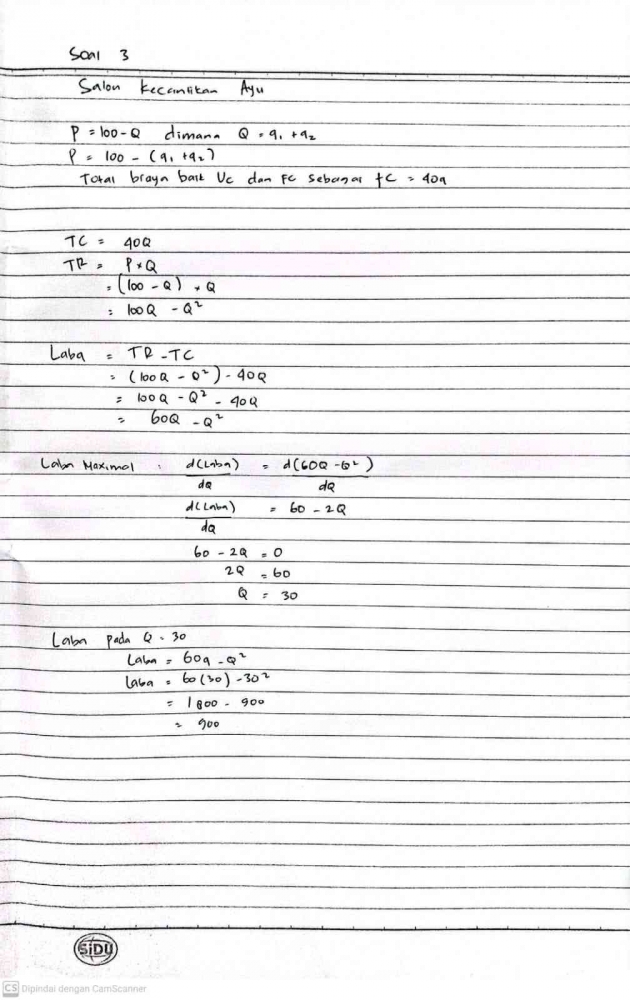 Soal 3
Salon Kecantikan Ayu
P = 100 - Q dimana Q = q₁ + q₂
P = 100 - (q₁ + q₂)
Total biaya baik VC dan FC sebagai tC = 40q
TC = 40Q
TR = P × Q
= (100 - Q) × Q
= 100Q - Q²
Laba = TR - TC
= (100Q - Q²) - 40Q
= 100Q - Q² - 40Q
= 60Q - Q²
Laba Maximal : d(Laba) = d(60Q - Q²)
dQ dQ
d(Laba) = 60 - 2Q
dQ
60 - 2Q = 0
2Q = 60
Q = 30
Laba pada Q = 30
Laba = 60q - Q²
Laba = 60(30) - 30²
= 1800 - 900
= 900
SiDU
CS Dipindai dengan CamScanner